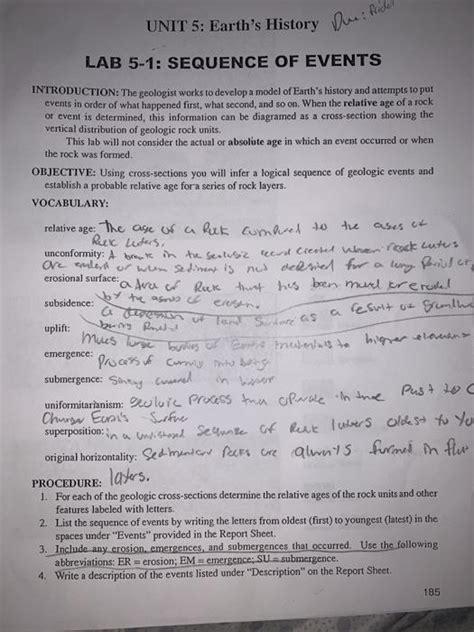 Due: Friday
UNIT 5: Earth's History
LAB 5-1: SEQUENCE OF EVENTS
INTRODUCTION: The geologist works to develop a model of Earth's history and attempts to put
events in order of what happened first, what second, and so on. When the relative age of a rock
or event is determined, this information can be diagramed as a cross-section showing the
vertical distribution of geologic rock units.
This lab will not consider the actual or absolute age in which an event occurred or when
the rock was formed.
OBJECTIVE: Using cross-sections you will infer a logical sequence of geologic events and
establish a probable relative age for a series of rock layers.
VOCABULARY:
relative age: The age of a Rock compared to the ages of
Rock layers.
unconformity: A break in the geologic record created when rock layers
are eroded or when sediment is not deposited for a long Period of
erosional surface: a Area of Rock that has been
by the of erosion.
subsidence: a depression of land Surface as a result of
being
uplift: large of Earth's materials to higher elevations
emergence: Process of coming into being
submergence: covered in water
uniformitarianism: Geologic Process that operate in the Past to
Change Earth's Surface
superposition: in a Sequence of Rock layers oldest to
original horizontality: Sedimentary Rocks are always formed in flat
layers.
PROCEDURE:
1. For each of the geologic cross-sections determine the relative ages of the rock units and other
features labeled with letters.
2. List the sequence of events by writing the letters from oldest (first) to youngest (latest) in the
spaces under "Events" provided in the Report Sheet.
3. Include any erosion, emergences, and submergences that occurred. Use the following
abbreviations: ER = erosion; EM = emergence; SU = submergence.
4. Write a description of the events listed under "Description" on the Report Sheet.
185